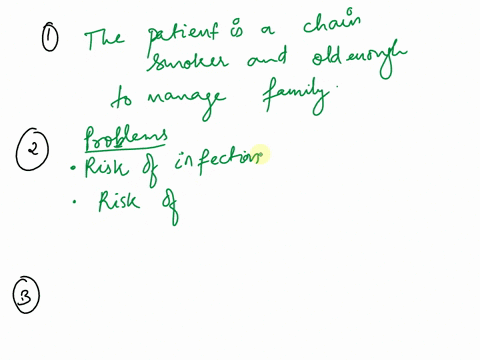 ① The patient is a chain
smoker and old enough
to manage family.
② Problems
• Risk of infection
• Risk of
③